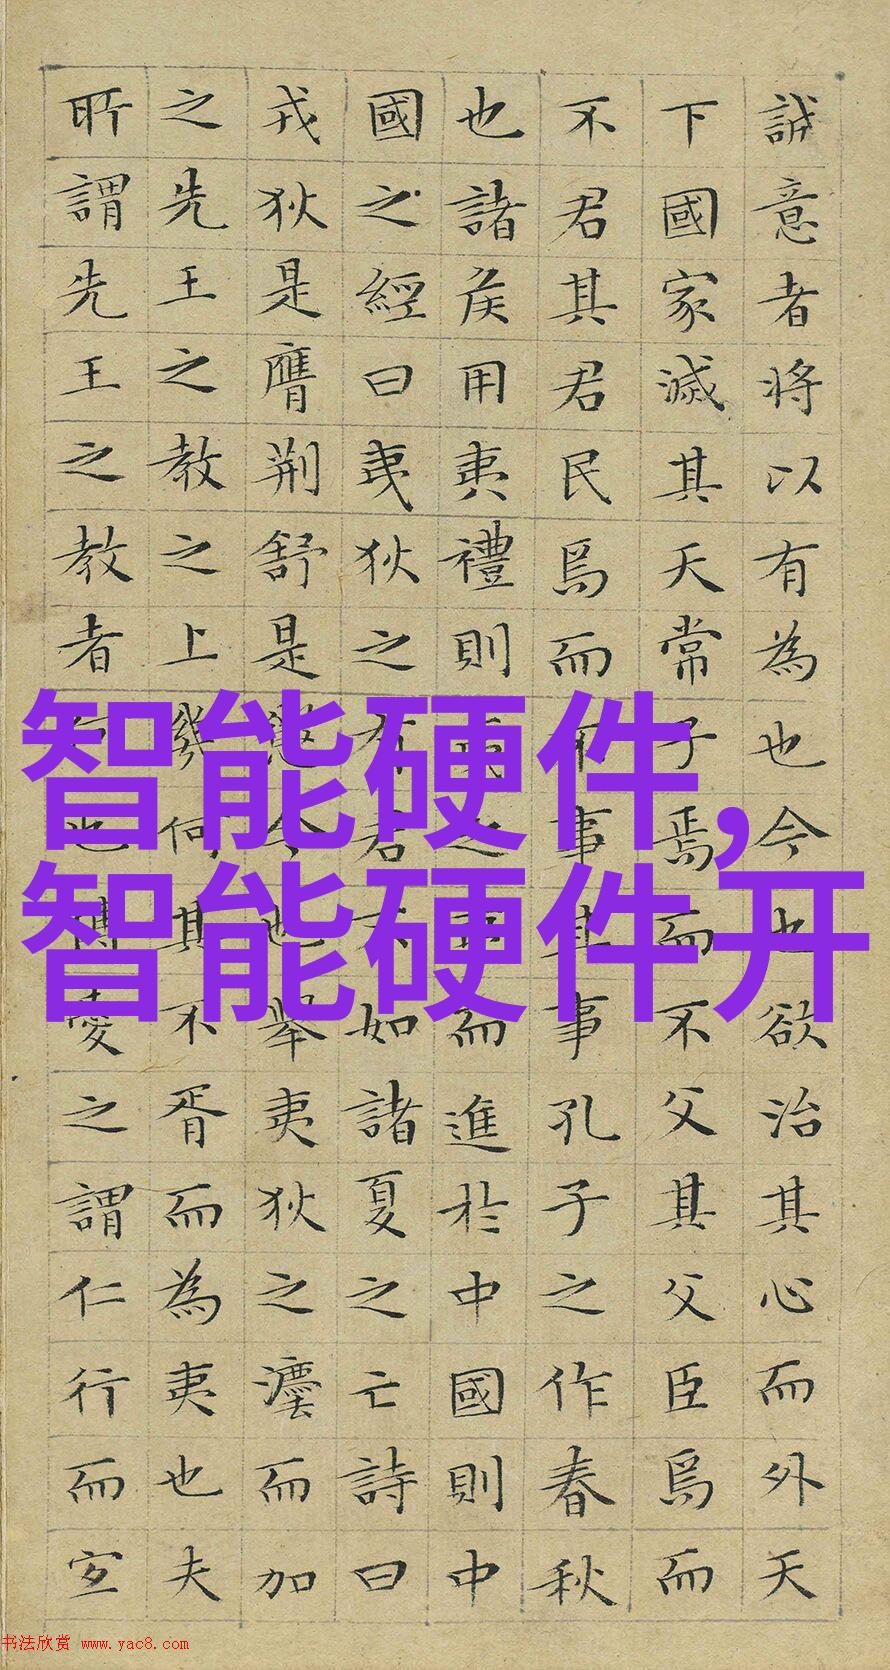 誡意者將以有為也今也欲治其心而外天
下國家滅其天常子焉而不父其父臣焉而
不君其君民焉而不事其事孔子之作春秋
也諸侯用夷禮則夷之夷而進於中國則中
國之經曰夷狄之有君不如諸夏之亡詩曰
戎狄是膺荊舒是懲今也舉夷狄之灋而加
之先王之教之上幾何其不胥而為夷也夫
所謂先王之教者何也博愛之謂仁行而宜
智能硬件,
智能硬件开
书法欣赏 www.yac8.com